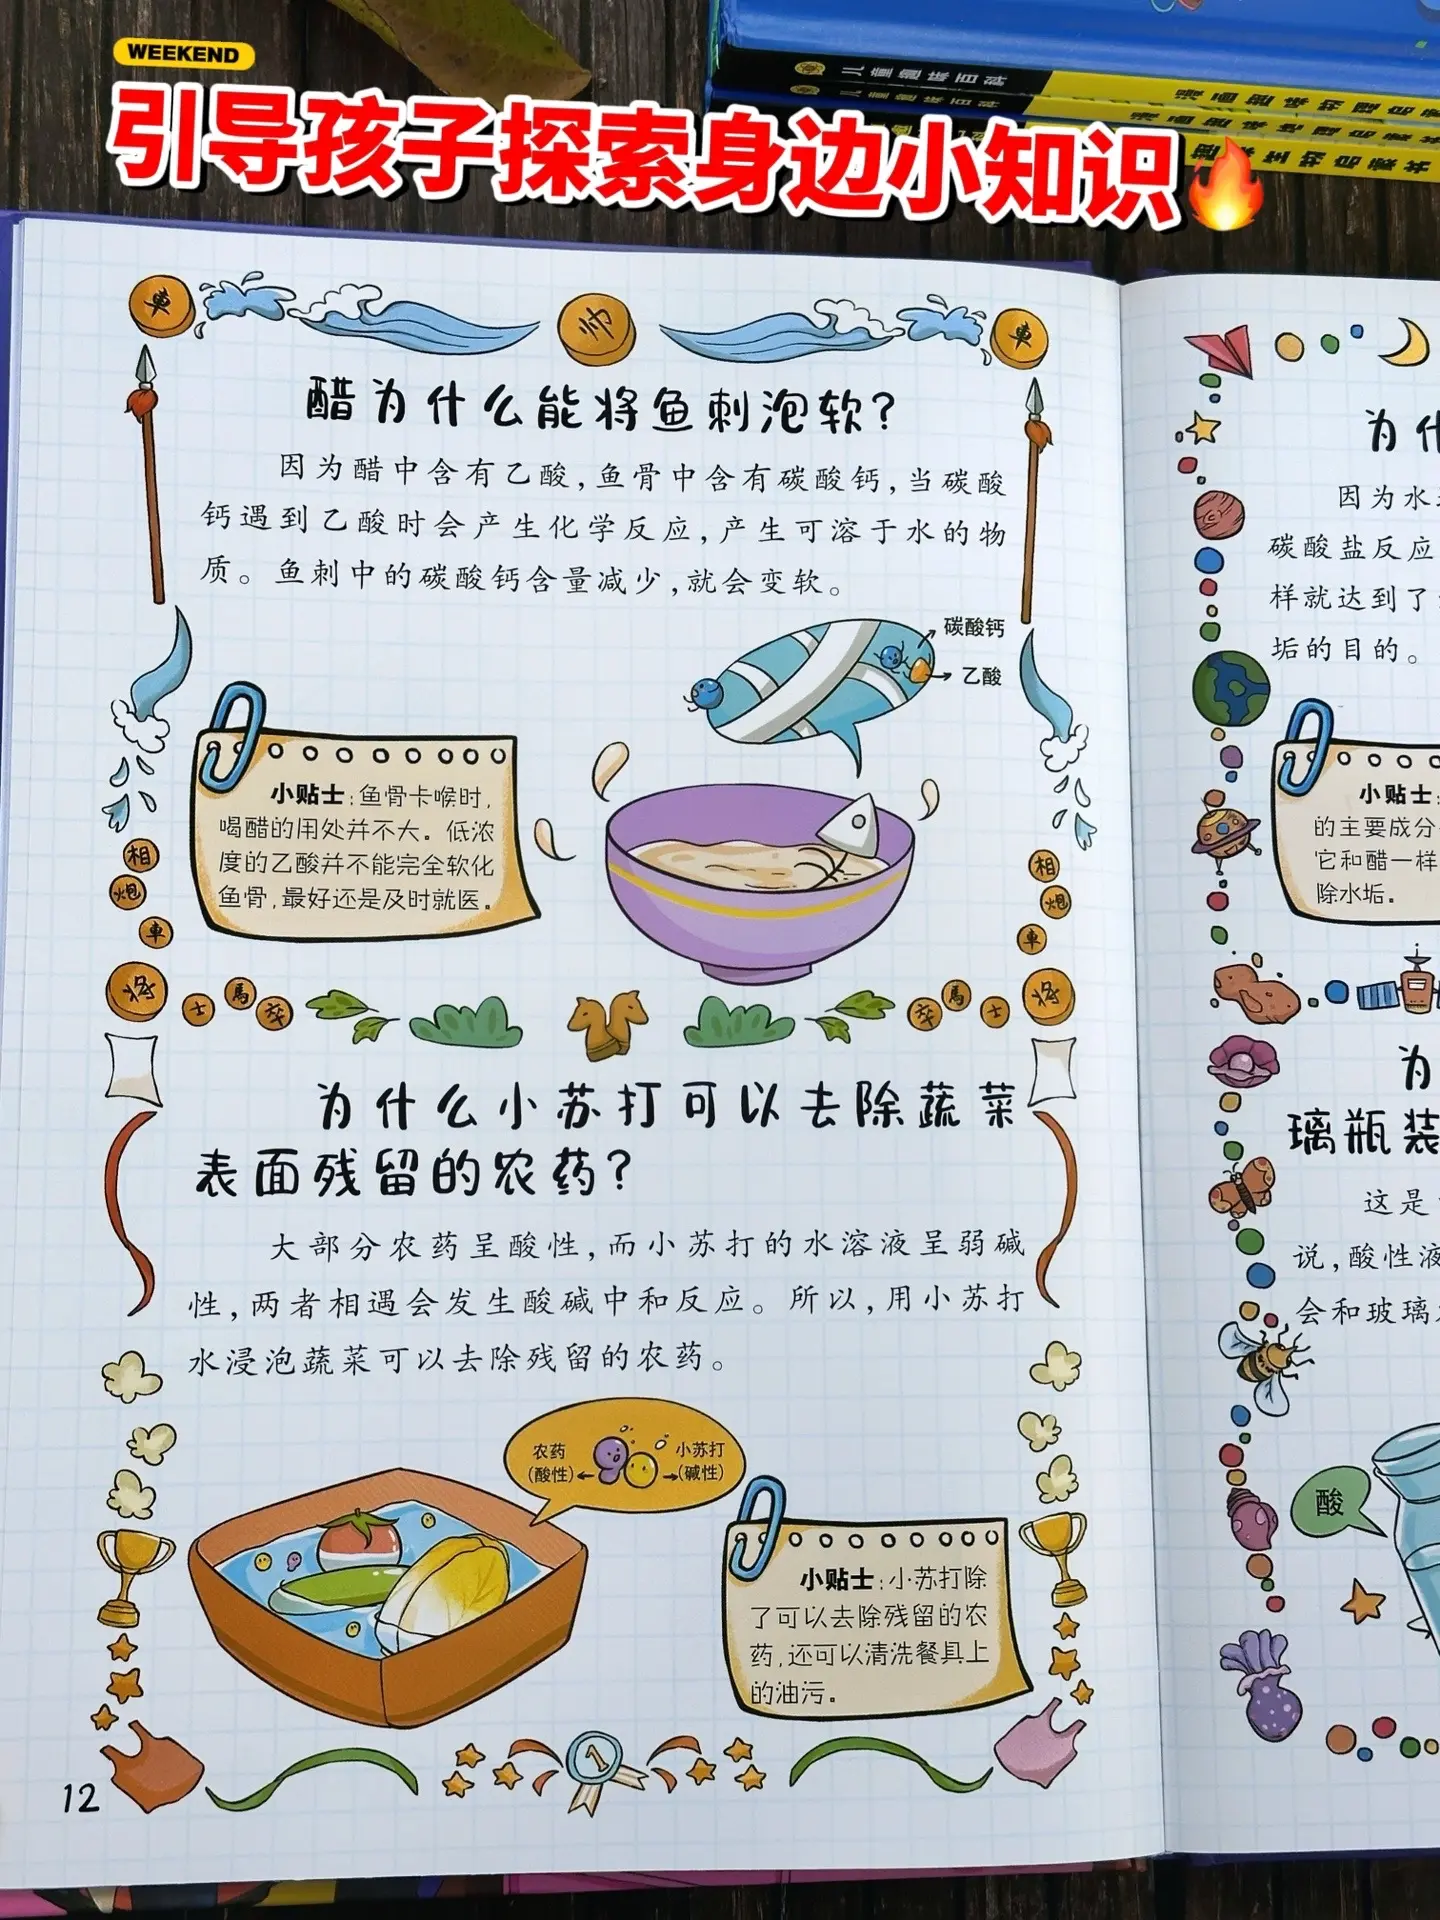 WEEKEND
引导孩子探索身边小知识
儿童趣味百科
儿童趣味百科
車
帅
車
醋为什么能将鱼刺泡软?
因为醋中含有乙酸,鱼骨中含有碳酸钙,当碳酸
钙遇到乙酸时会产生化学反应,产生可溶于水的物
质。鱼刺中的碳酸钙含量减少,就会变软。
碳酸钙
乙酸
小贴士:鱼骨卡喉时,
喝醋的用处并不大。低浓
度的乙酸并不能完全软化
鱼骨,最好还是及时就医。
相
炮
車
将
士
馬
卒
相
炮
車
卒
馬
士
将
为什么小苏打可以去除蔬菜
表面残留的农药?
大部分农药呈酸性,而小苏打的水溶液呈弱碱
性,两者相遇会发生酸碱中和反应。所以,用小苏打
水浸泡蔬菜可以去除残留的农药。
农药
(酸性)
小苏打
(碱性)
小贴士:小苏打除
了可以去除残留的农
药,还可以清洗餐具上
的油污。
1
12
为什
因为水
碳酸盐反应
样就达到了
垢的目的。
小贴士:
的主要成分
它和醋一样
除水垢。
为
璃瓶装
这是
说,酸性液
会和玻璃
酸